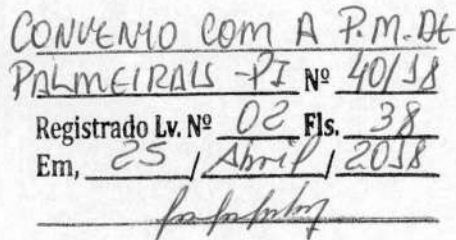 CONVENIO COM A P.M. DE
PALMEIRAIS - PI Nº 40/18
Registrado Lv. Nº 02 Fls. 38
Em, 25 / Abril / 2018